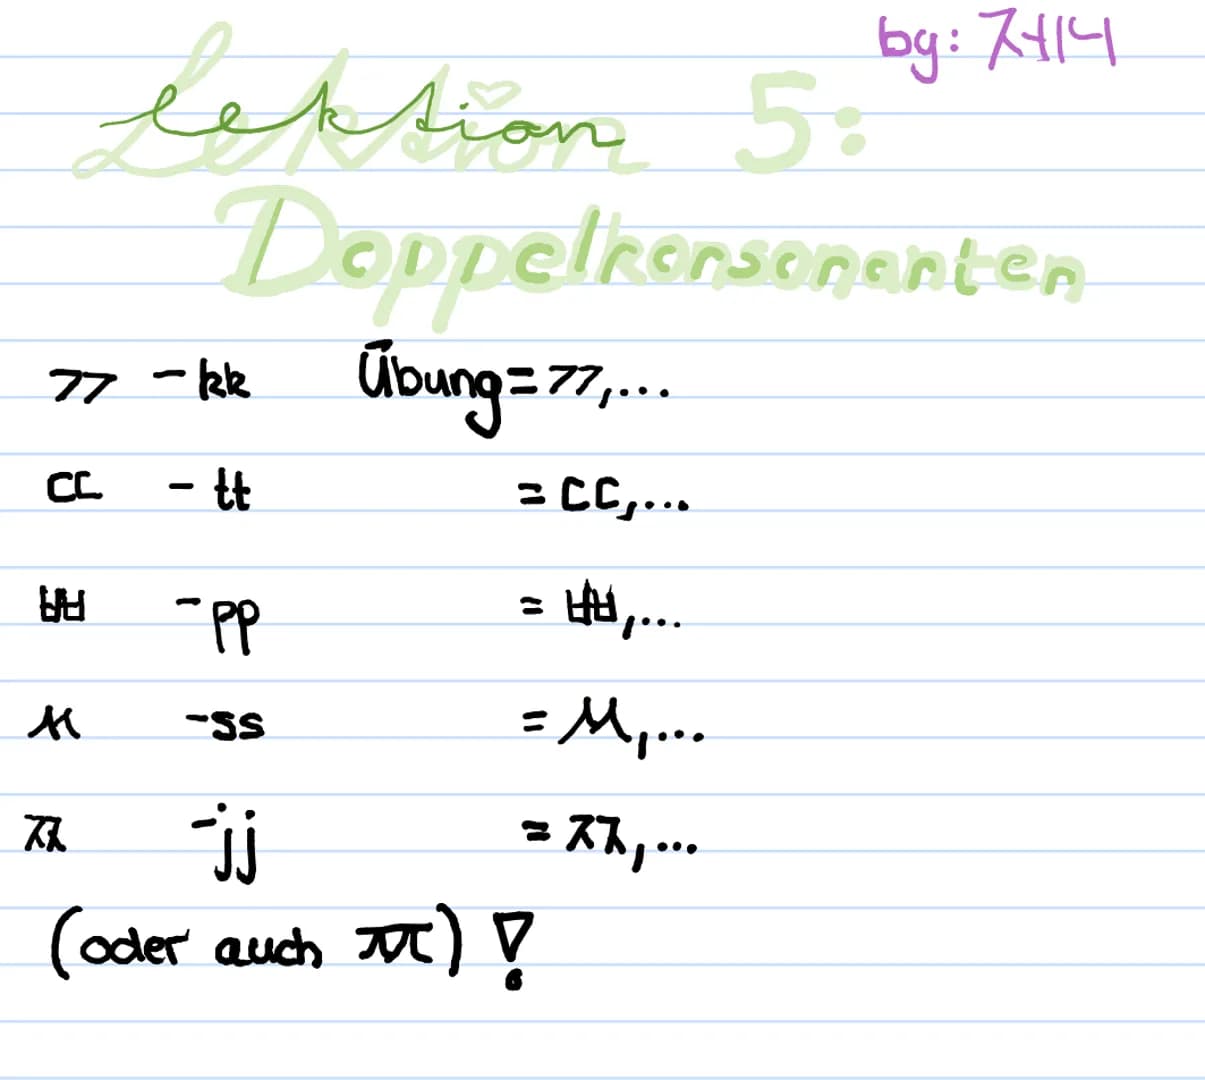 by: 제니
Lektion 5:
Doppelkonsonanten
ㄲ - kk Übung = ㄲ,...
ㄸ - tt = ㄸ,...
ㅃ - pp = ㅃ,...
ㅆ - ss = ㅆ,...
ㅉ - jj = ㅉ,...
(oder auch ㅉ)!